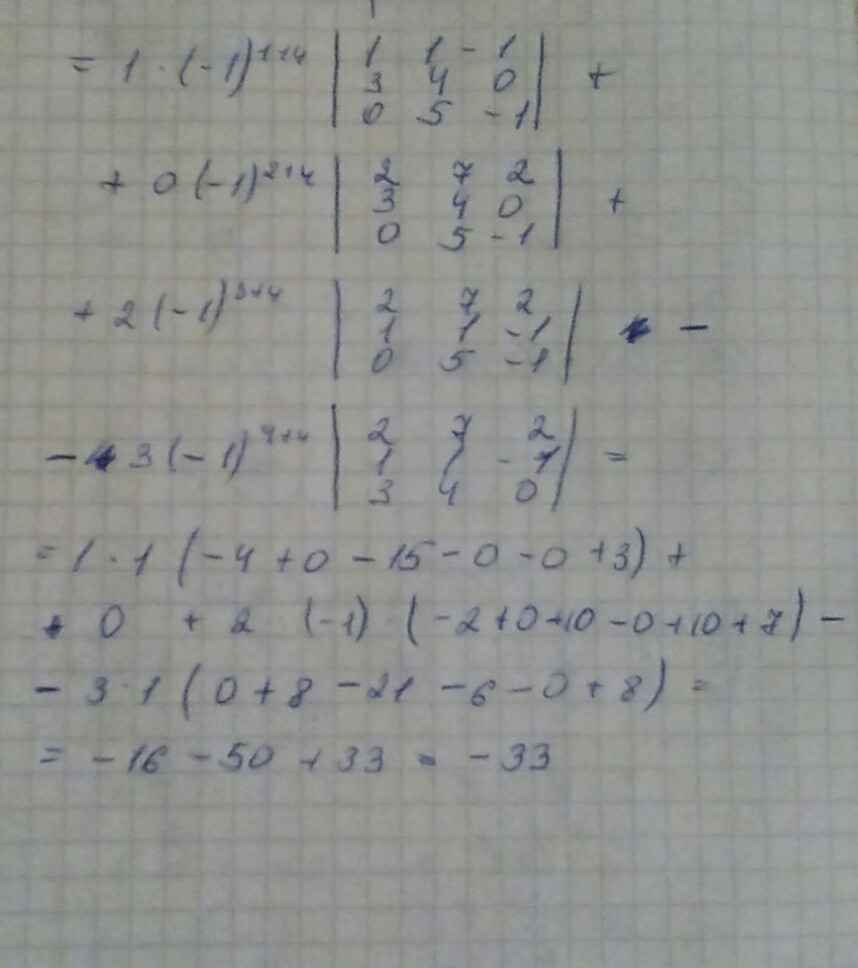 = 1 · (-1)^{1+4} | 1 1 -1
3 4 0
0 5 -1 | +
+ 0 (-1)^{2+4} | 2 7 2
3 4 0
0 5 -1 | +
+ 2 (-1)^{3+4} | 2 7 2
1 1 -1
0 5 -1 | -
- 3 (-1)^{4+4} | 2 7 2
1 1 -1
3 4 0 | =
= 1 · 1 (-4 + 0 - 15 - 0 - 0 + 3) +
+ 0 + 2 (-1) · (-2 + 0 + 10 - 0 + 10 + 7) -
- 3 · 1 (0 + 8 - 21 - 6 - 0 + 8) =
= -16 - 50 + 33 = -33